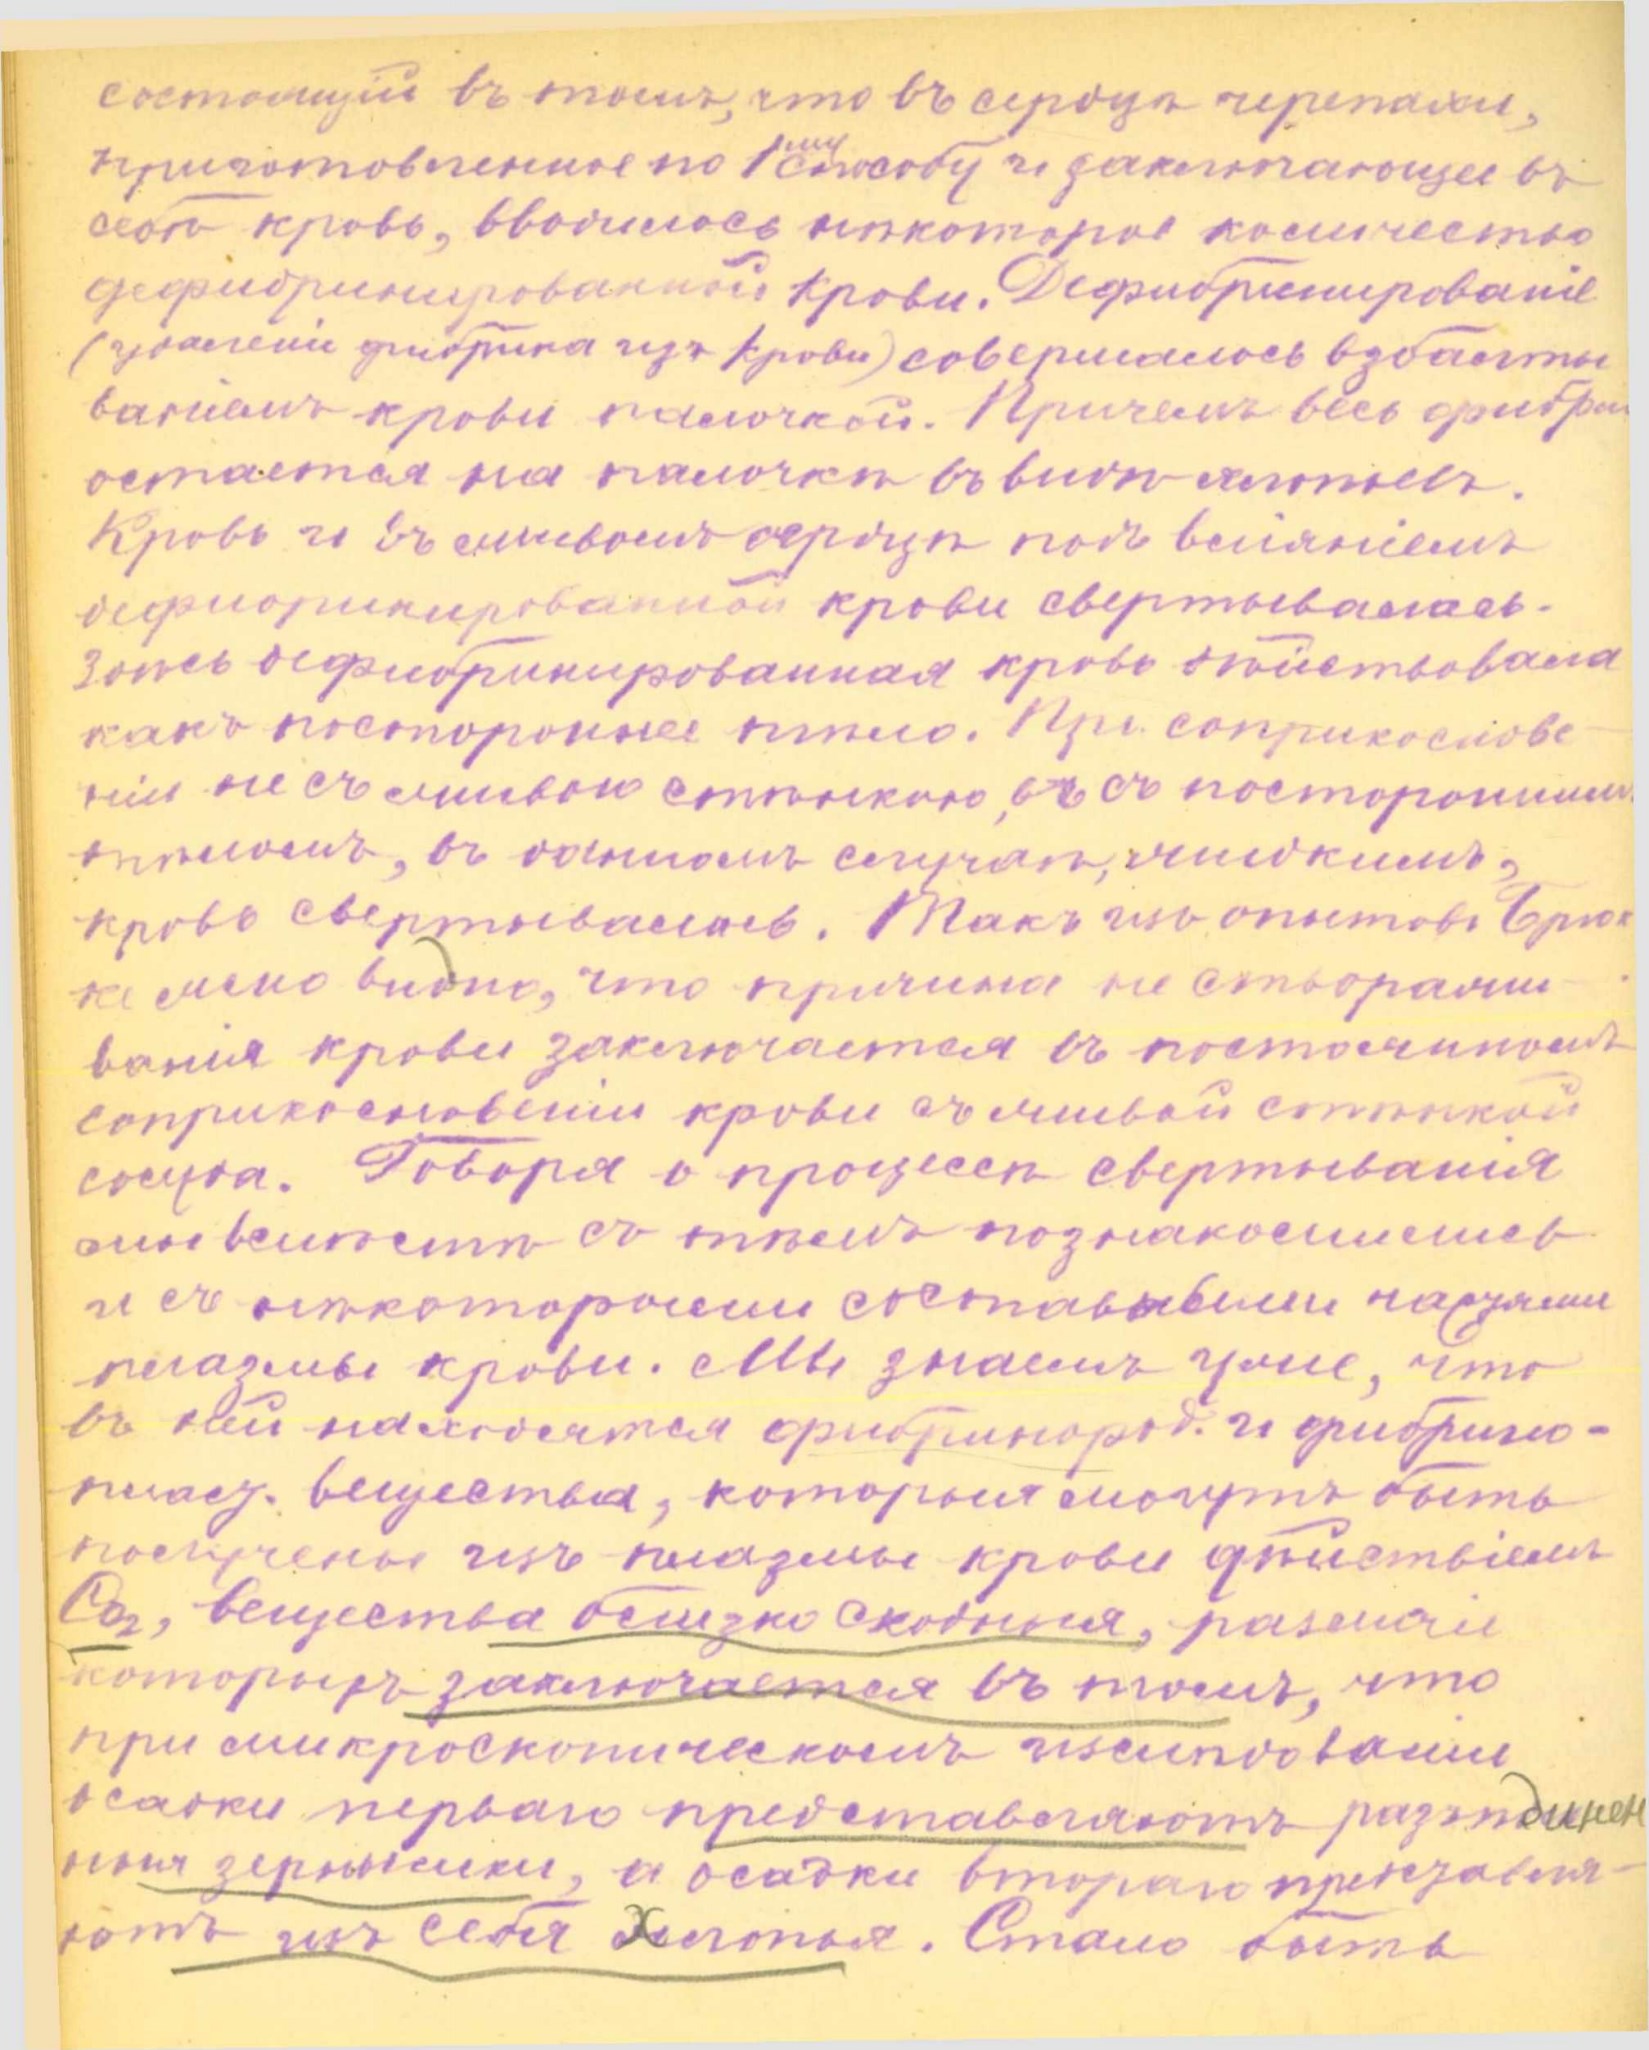 состоящiй въ томъ, что въ сердце черепахи,
приготовленное по 1му способу и заключающее въ
себѣ кровь, вводилось нѣкоторое количество
дефибринированной крови. Дефибринированiе
(удаленiе фибрина изъ крови) совершалось взбалты
ванiемъ крови палочкой. Причемъ весь фибрин
остается на палочкѣ въ видѣ хлопьевъ.
Кровь и въ живомъ сердцѣ подъ влiянiемъ
дефибринированной крови свертывалась.
Здѣсь дефибринированная кровь дѣйствовала
какъ постороннее тѣло. При соприкоснове-
нiи не съ живою стѣнкою, а съ постороннимъ
тѣломъ, въ данномъ случаѣ, жидкимъ,
кровь свертывалась. Такъ изъ опытовъ Брюк
ке ясно видно, что причина не створажи-
ванiя крови заключается въ постоянномъ
соприкосновенiи крови съ живой стѣнкой
сосуда. Говоря о процессѣ свертыванiя
мы вмѣстѣ съ тѣмъ познакомились
и съ нѣкоторыми составными частями
плазмы крови. Мы знаемъ уже, что
въ ней находятся фибриногород. и фибрино-
пласт. вещества, которыя могутъ быть
получены изъ плазмы крови дѣйствiемъ
Co2, вещества близко сходныя, различiе
которыхъ заключается въ томъ, что
при микроскопическомъ изслѣдованiи
осадки перваго представляютъ разъединен
ныя зернышки, а осадки втораго представля-
ютъ изъ себя хлопья. Стало быть